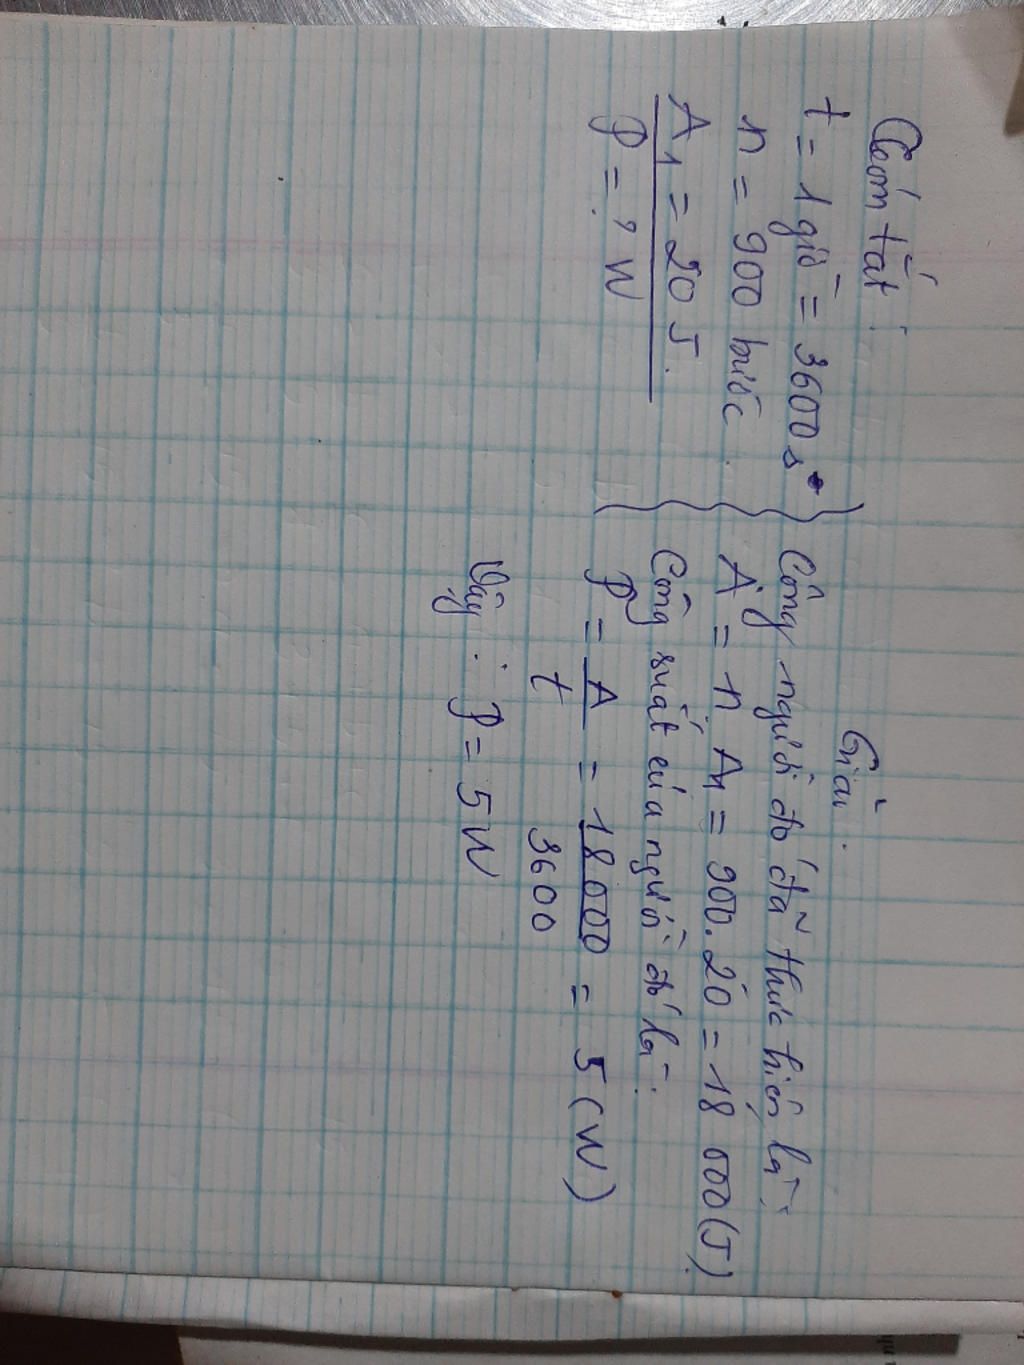 Tóm tắt:
t = 1 giờ = 3600 s
n = 900 bước.
A1 = 20 J.
P = ? W
Giải:
Công người đó đã thực hiện là:
A = n A1 = 900.20 = 18 000 (J).
Công suất của người đó là:
P = A/t = 18000/3600 = 5 (W)
Vậy: P = 5 W